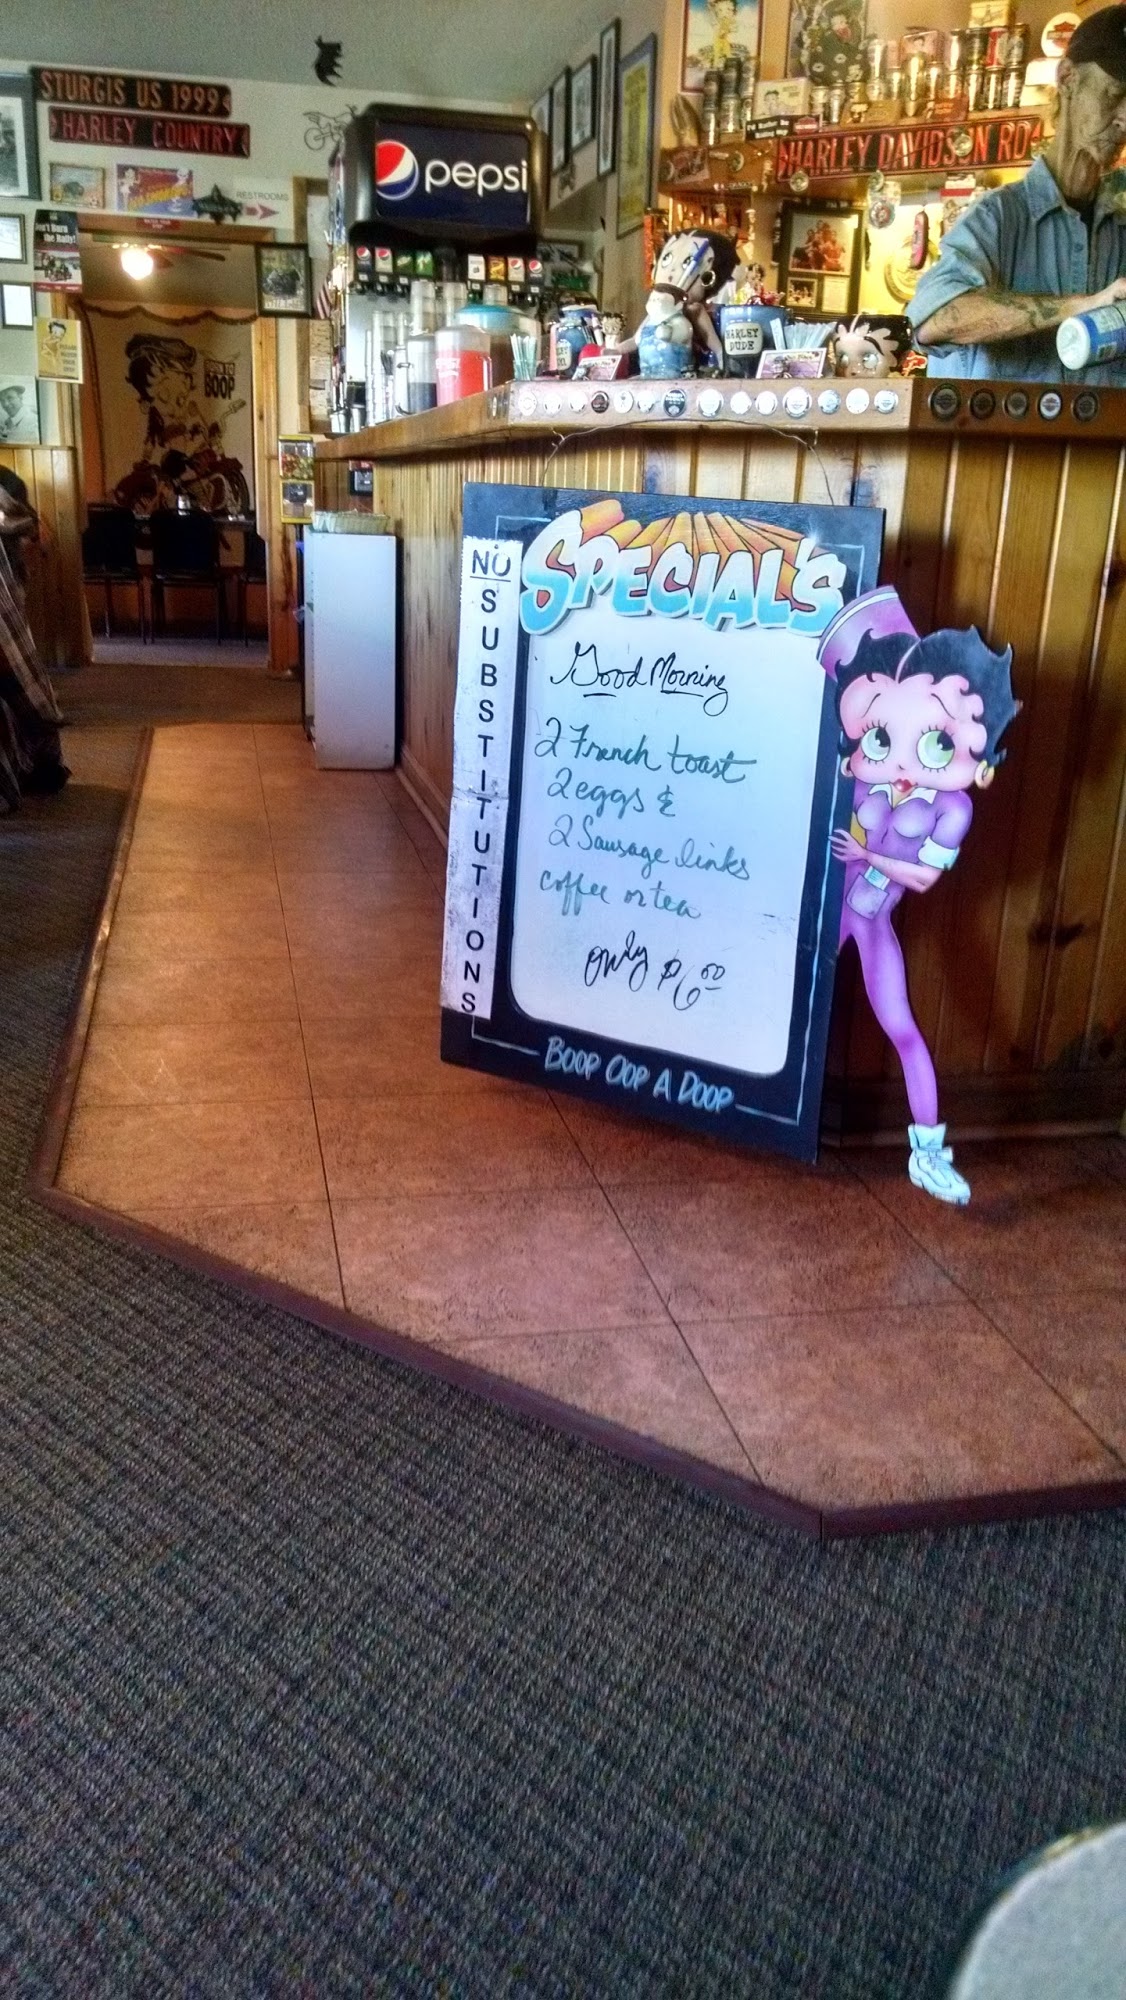 STURGIS US 1999
HARLEY COUNTRY
RESTROOMS
the Rally!
pepsi
HARLEY DAVIDSON RD
HARLEY
DUDE
BOOP
NO SUBSTITUTIONS
SPECIAL'S
Good Morning
2 French toast
2 eggs &
2 Sausage links
coffee or tea
only $6.00
BOOP OOP A DOOP